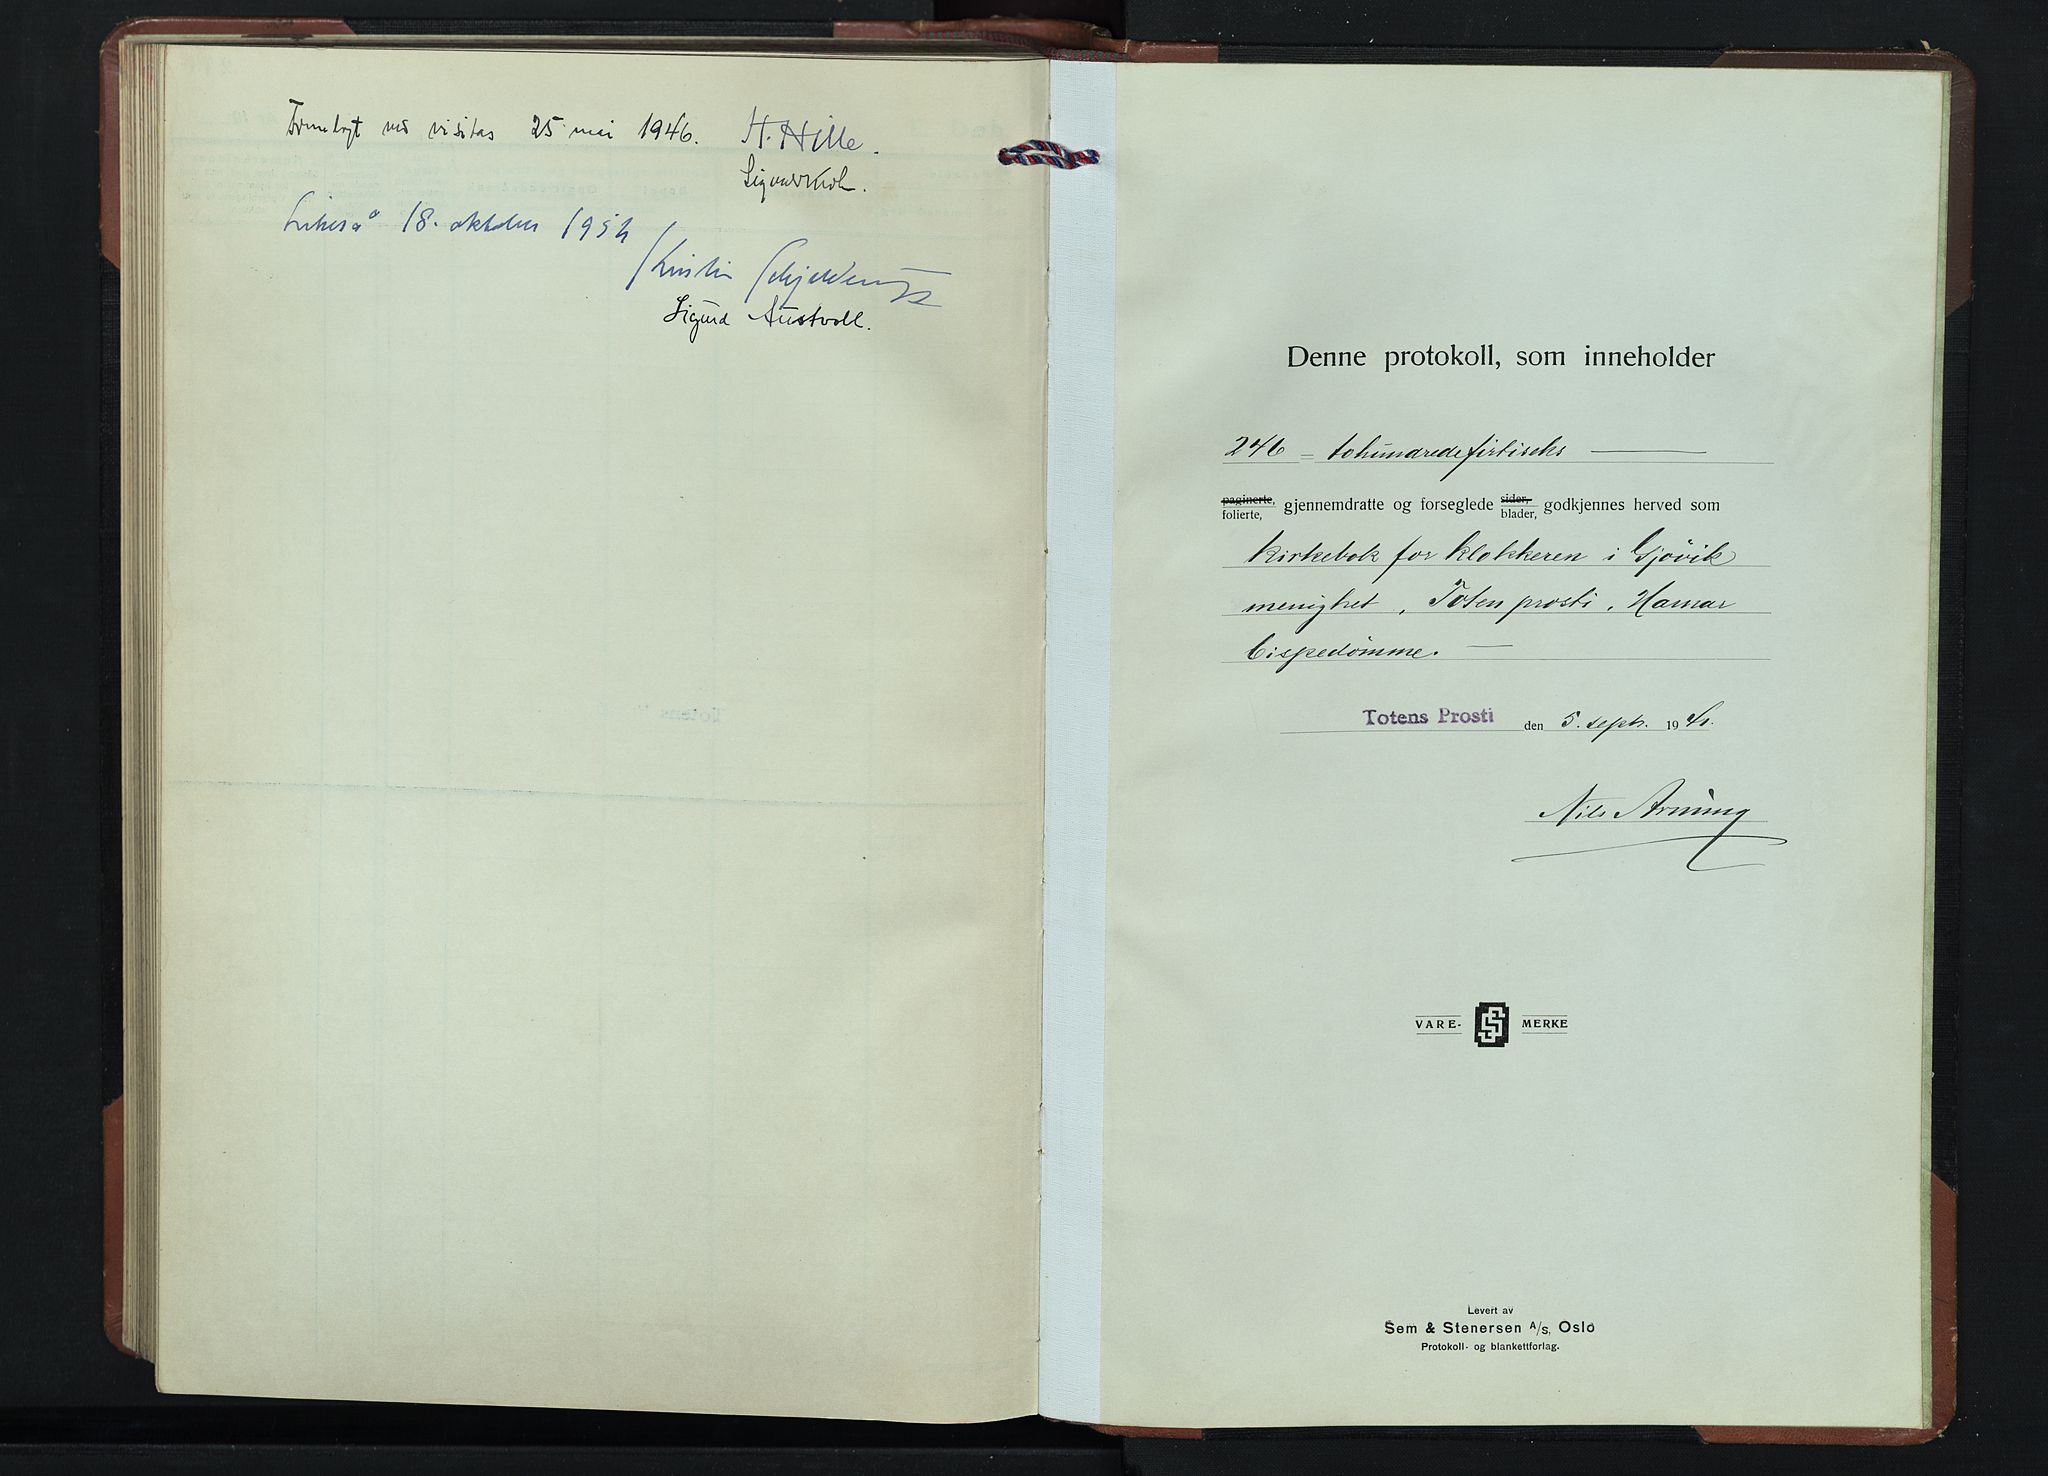 Fremlagt ved visitas 25 mai 1946. H. Hille.
Likeså 18. oktober 1954
Kristian Schjelderup
Sigurd Austvoll.
Denne protokoll, som inneholder
246 = tohundredeførtiseks
paginerte, folierte, gjennemdratte og forseglede sider, blader, godkjennes herved som
kirkebok for klokkeren i Gjøvik
menighet, Toten prosti, Hamar
bispedømme.
Totens Prosti den 5. sept. 1941.
Nils Arnung
VARE- S MERKE
Levert av
Sem & Stenersen A/S, Oslo
Protokoll- og blankettforlag.